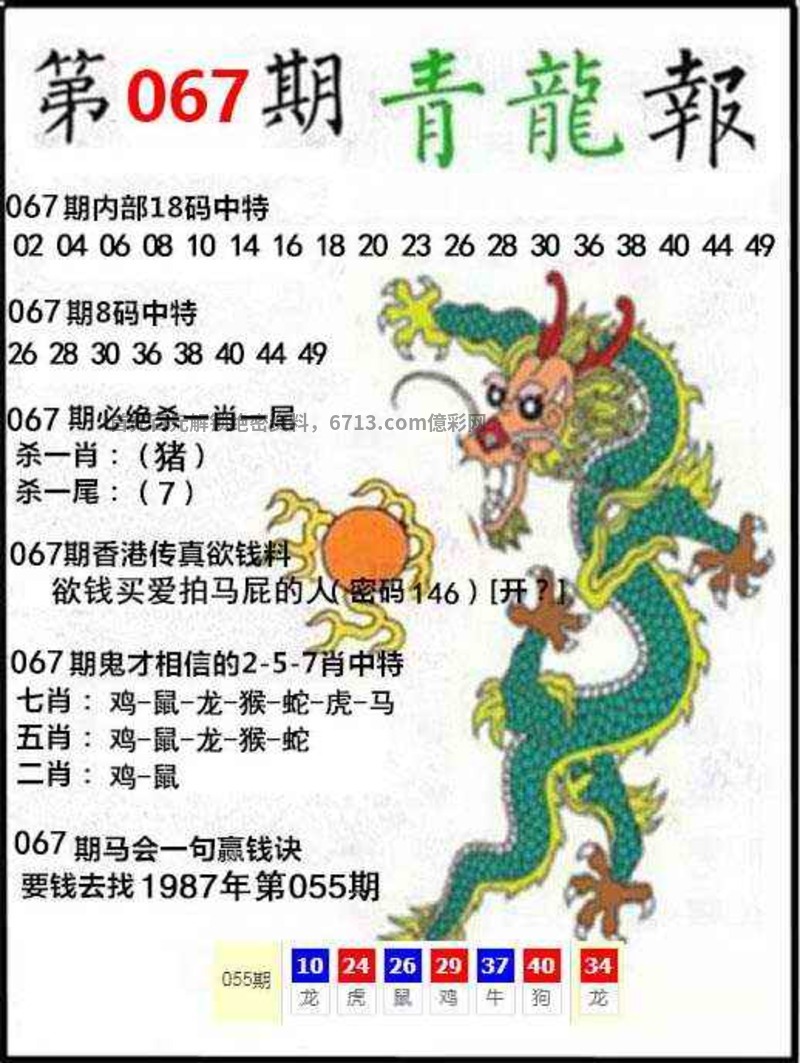 第067期 青龍報
067期内部18码中特
02 04 06 08 10 14 16 18 20 23 26 28 30 36 38 40 44 49
067期8码中特
26 28 30 36 38 40 44 49
067期必绝杀一肖一尾
料，6713.com億彩网
杀一肖：（猪）
杀一尾：（7）
067期香港传真欲钱料
欲钱买爱拍马屁的人(密码146）[开？]
067期鬼才相信的2-5-7肖中特
七肖：鸡-鼠-龙-猴-蛇-虎-马
五肖：鸡-鼠-龙-猴-蛇
二肖：鸡-鼠
067期马会一句赢钱诀
要钱去找1987年第055期
055期 10 24 26 29 37 40 34
龙 虎 鼠 鸡 牛 狗 龙